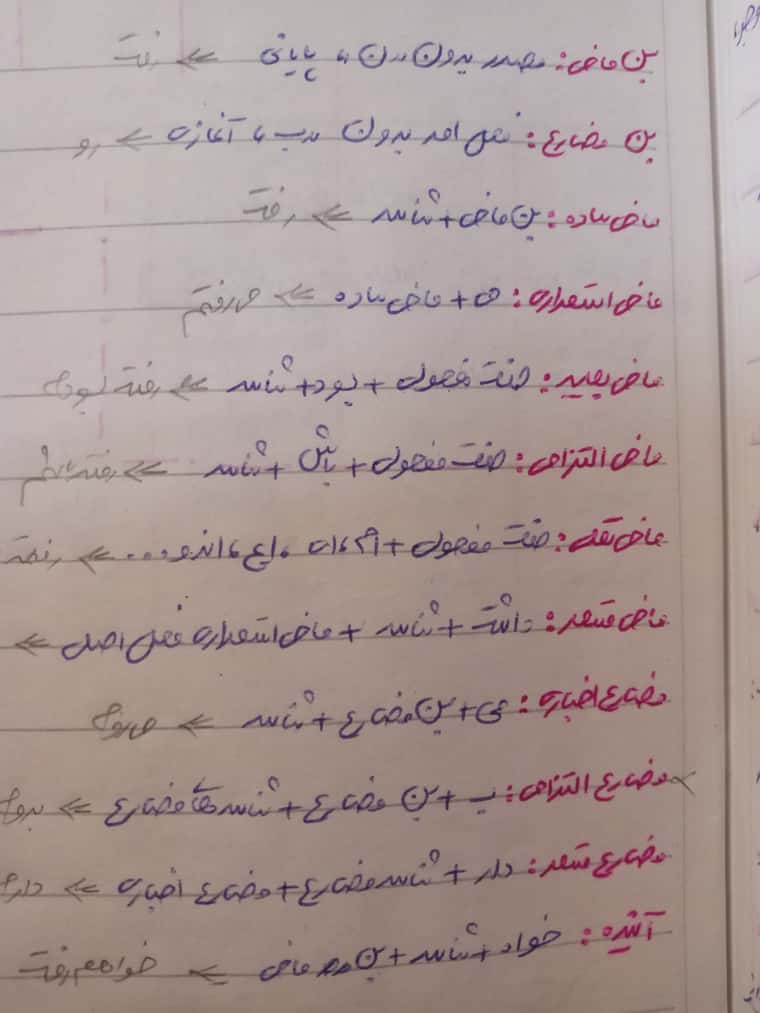 بن ماضی: مصدر بدون ـَ ن پایانی ← رفت
بن مضارع: فعل امر بدون ب آغازه ← رو
ماضی ساده: بن ماضی + شناسه ← رفت
ماضی استمراری: می + ماضی ساده ← می رفتم
ماضی بعید: صفت مفعولی + بود + شناسه ← رفته بودم
ماضی التزامی: صفت مفعولی + باش + شناسه ← رفته باشم
ماضی نقلی: صفت مفعولی + ام ، ای ، اند و ... ← رفته
ماضی مستمر: داشت + شناسه + ماضی استمراری فعل اصلی ←
مضارع اخباری: می + بن مضارع + شناسه ← می روم
مضارع التزامی: ب + بن مضارع + شناسه های مضارع ← بروم
مضارع مستمر: دار + شناسه مضارع + مضارع اخباری ← دارم
آینده: خواه + شناسه + بن ماضی ← خواهم رفت